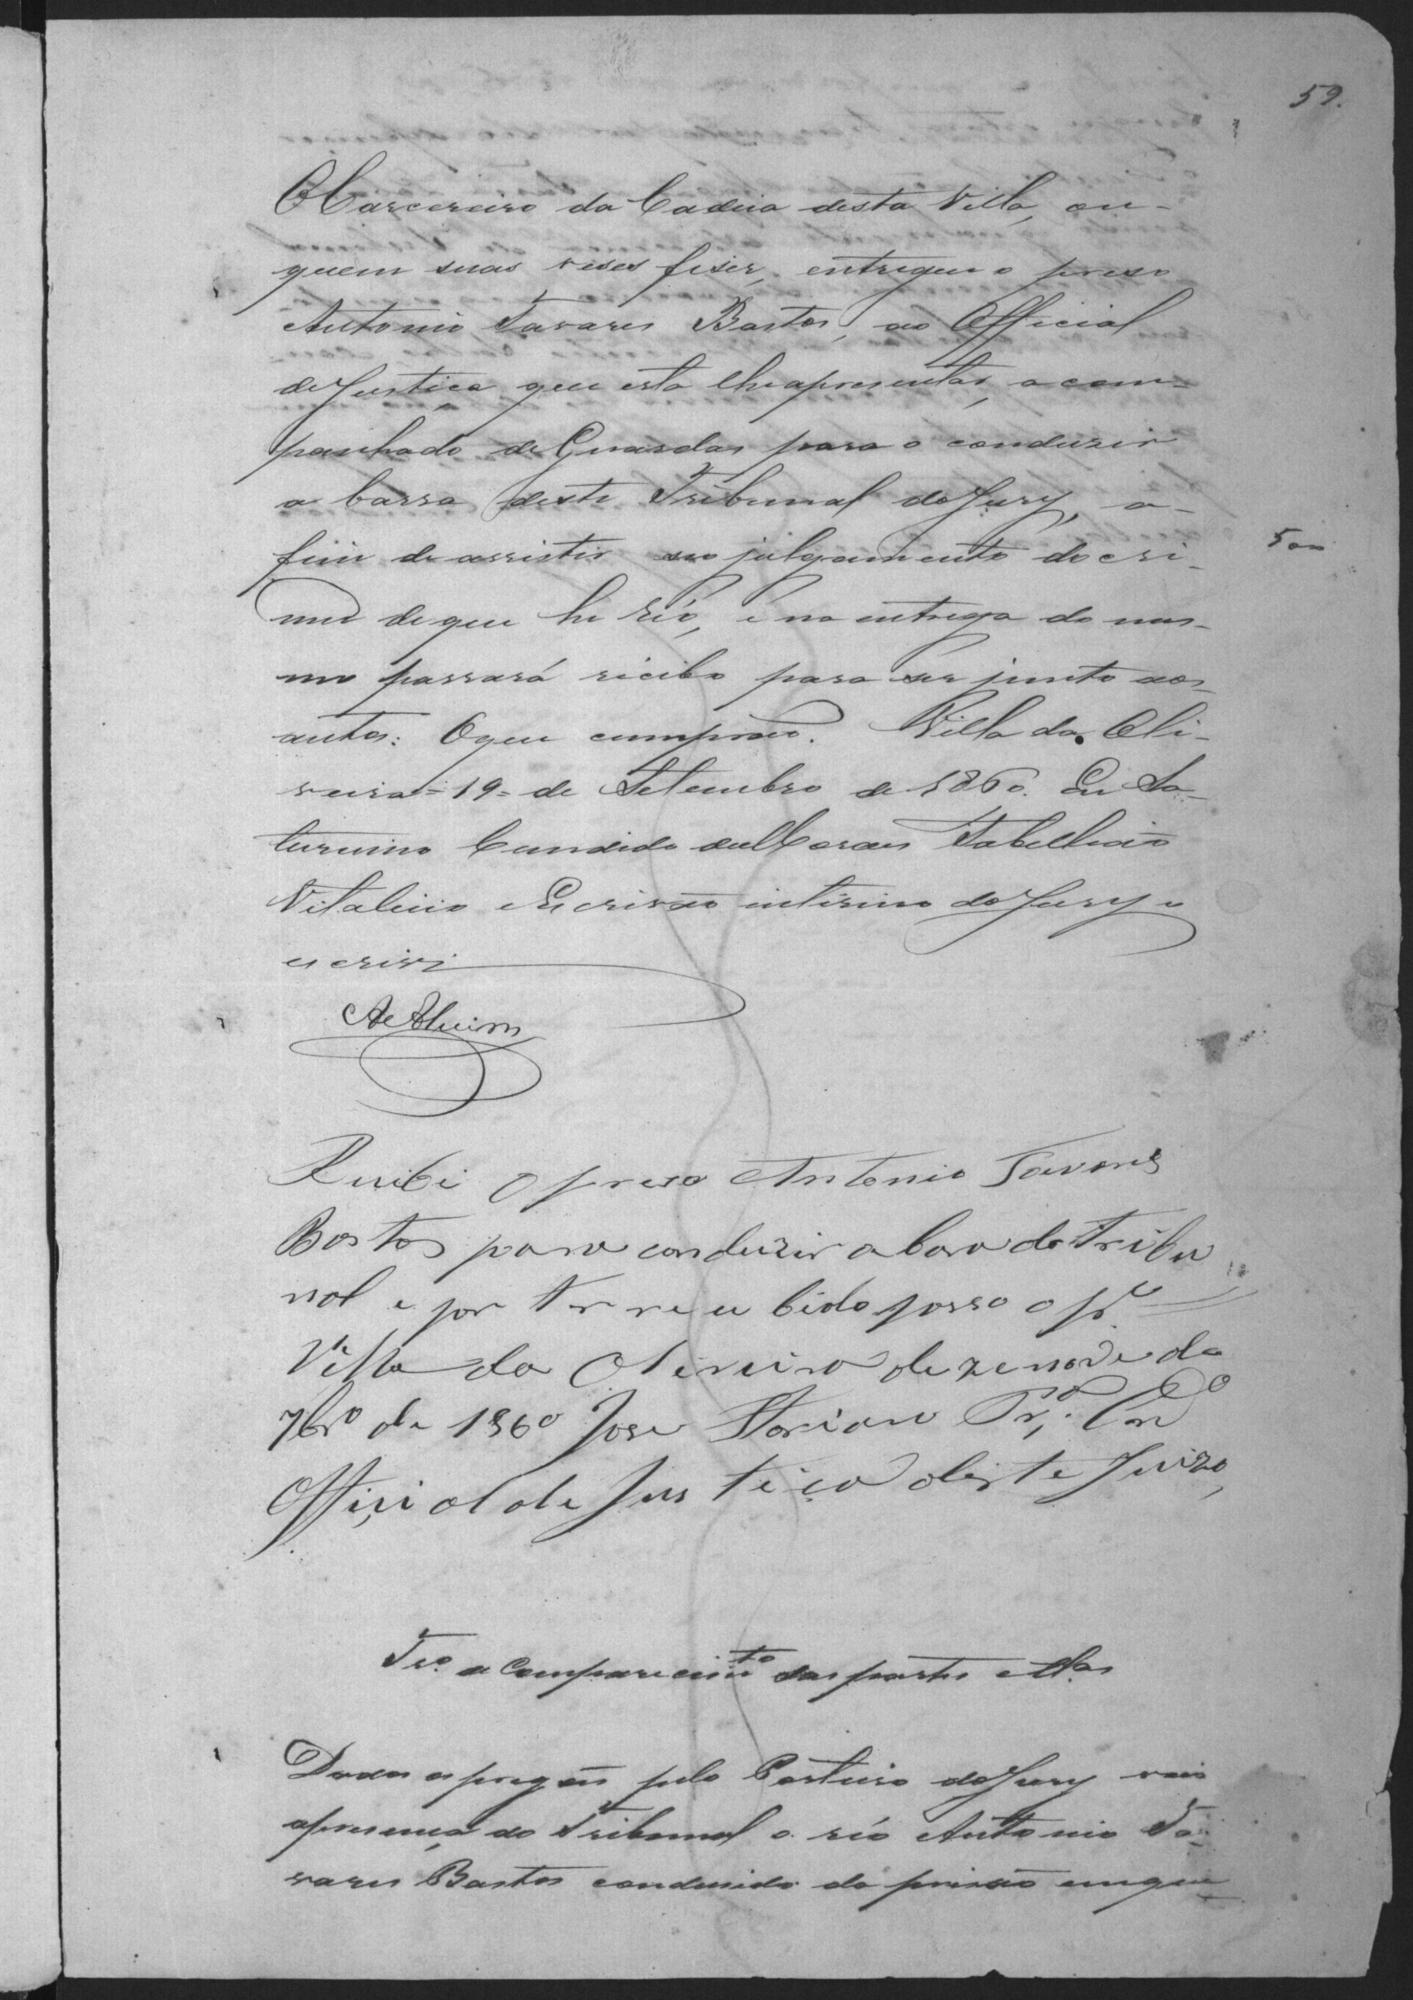 59.
O Carcereiro da Cadeia desta Villa, ou-
quem suas veses fiser, entregue o preso
Antonio Tavares Bastos, ao Official
de Justiça que esta lhe apresentar, acom-
panhado de Guardas para o conduzir
a barra deste Tribunal do Jury, a-
fim de assistir ao julgamento do cri-
500
me de que he réo, e na entrega do mes-
mo passará recibo para ser junto aos
autos: O que cumprão. Villa da Oli-
veira = 19 = de Setembro de 1860. Eu Sa-
turnino Candido de Moraes Tabellião
Vitalicio e Escrivão interino do Jury o
escrevi
Recibi o preso Antonio Tavares
Bastos para conduzir a bara do Tribu
nal e por ter recibido passo o pr.e
Villa da Oliveira dezenove de
7br.o de 1860 Jose
Official de Justiça deste Juizo,
Tr.o de Comparecim.to das partes e
Dados os pregões pelo Porteiro do Jury veio
apresença do Tribunal o réo Antonio Ta-
vares Bastos condusido da prisão em que